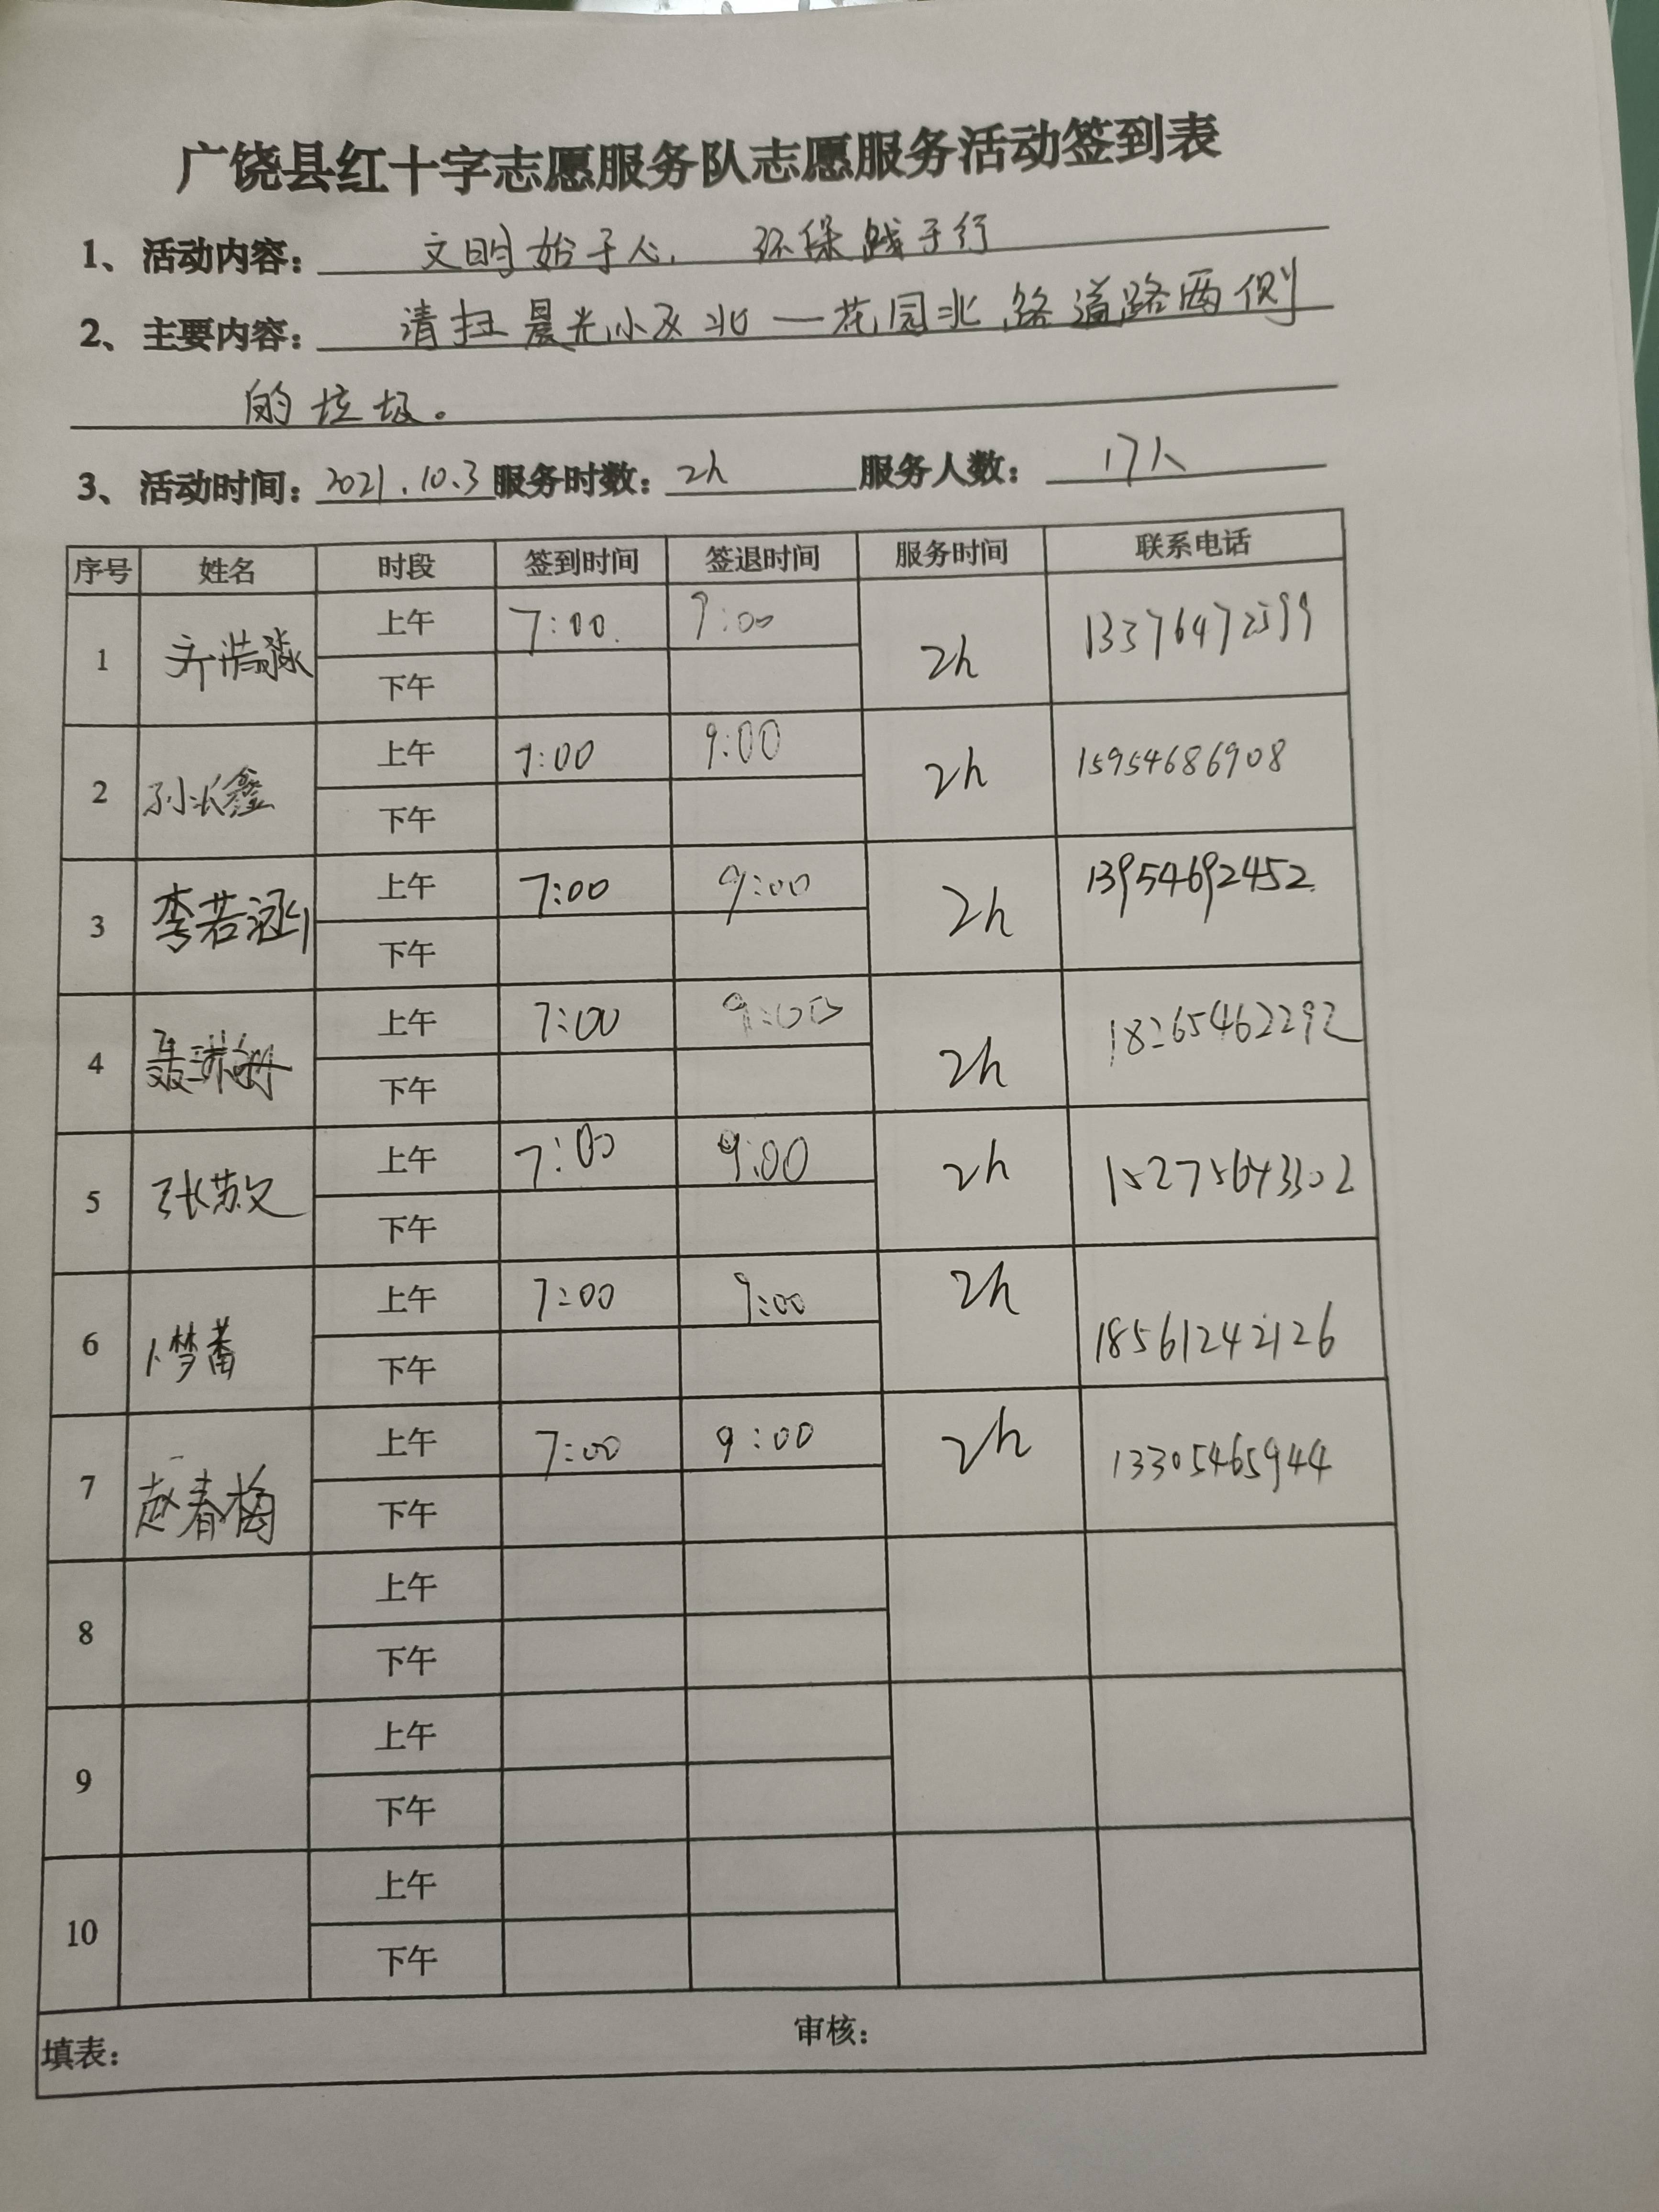 广饶县红十字志愿服务队志愿服务活动签到表
1、活动内容： 文明始于心， 环保践于行
2、主要内容： 清扫晨光小区北—花园北路道路两侧
的垃圾。
3、活动时间：2021.10.3 服务时数：2h 服务人数：17人
序号 姓名 时段 签到时间 签退时间 服务时间 联系电话
1 齐浩淼 上午 7:00 9:00 2h 13376472599
下午
2 孙长鑫 上午 7:00 9:00 2h 15954686908
下午
3 李若涵 上午 7:00 9:00 2h 13954692452
下午
4 聂琳姗 上午 7:00 9:00 2h 18265462292
下午
5 张苏文 上午 7:00 9:00 2h 15275643302
下午
6 卜梦蕾 上午 7:00 9:00 2h 18561242126
下午
7 赵春梅 上午 7:00 9:00 2h 13305465944
下午
8 上午
下午
9 上午
下午
10 上午
下午
填表： 审核：